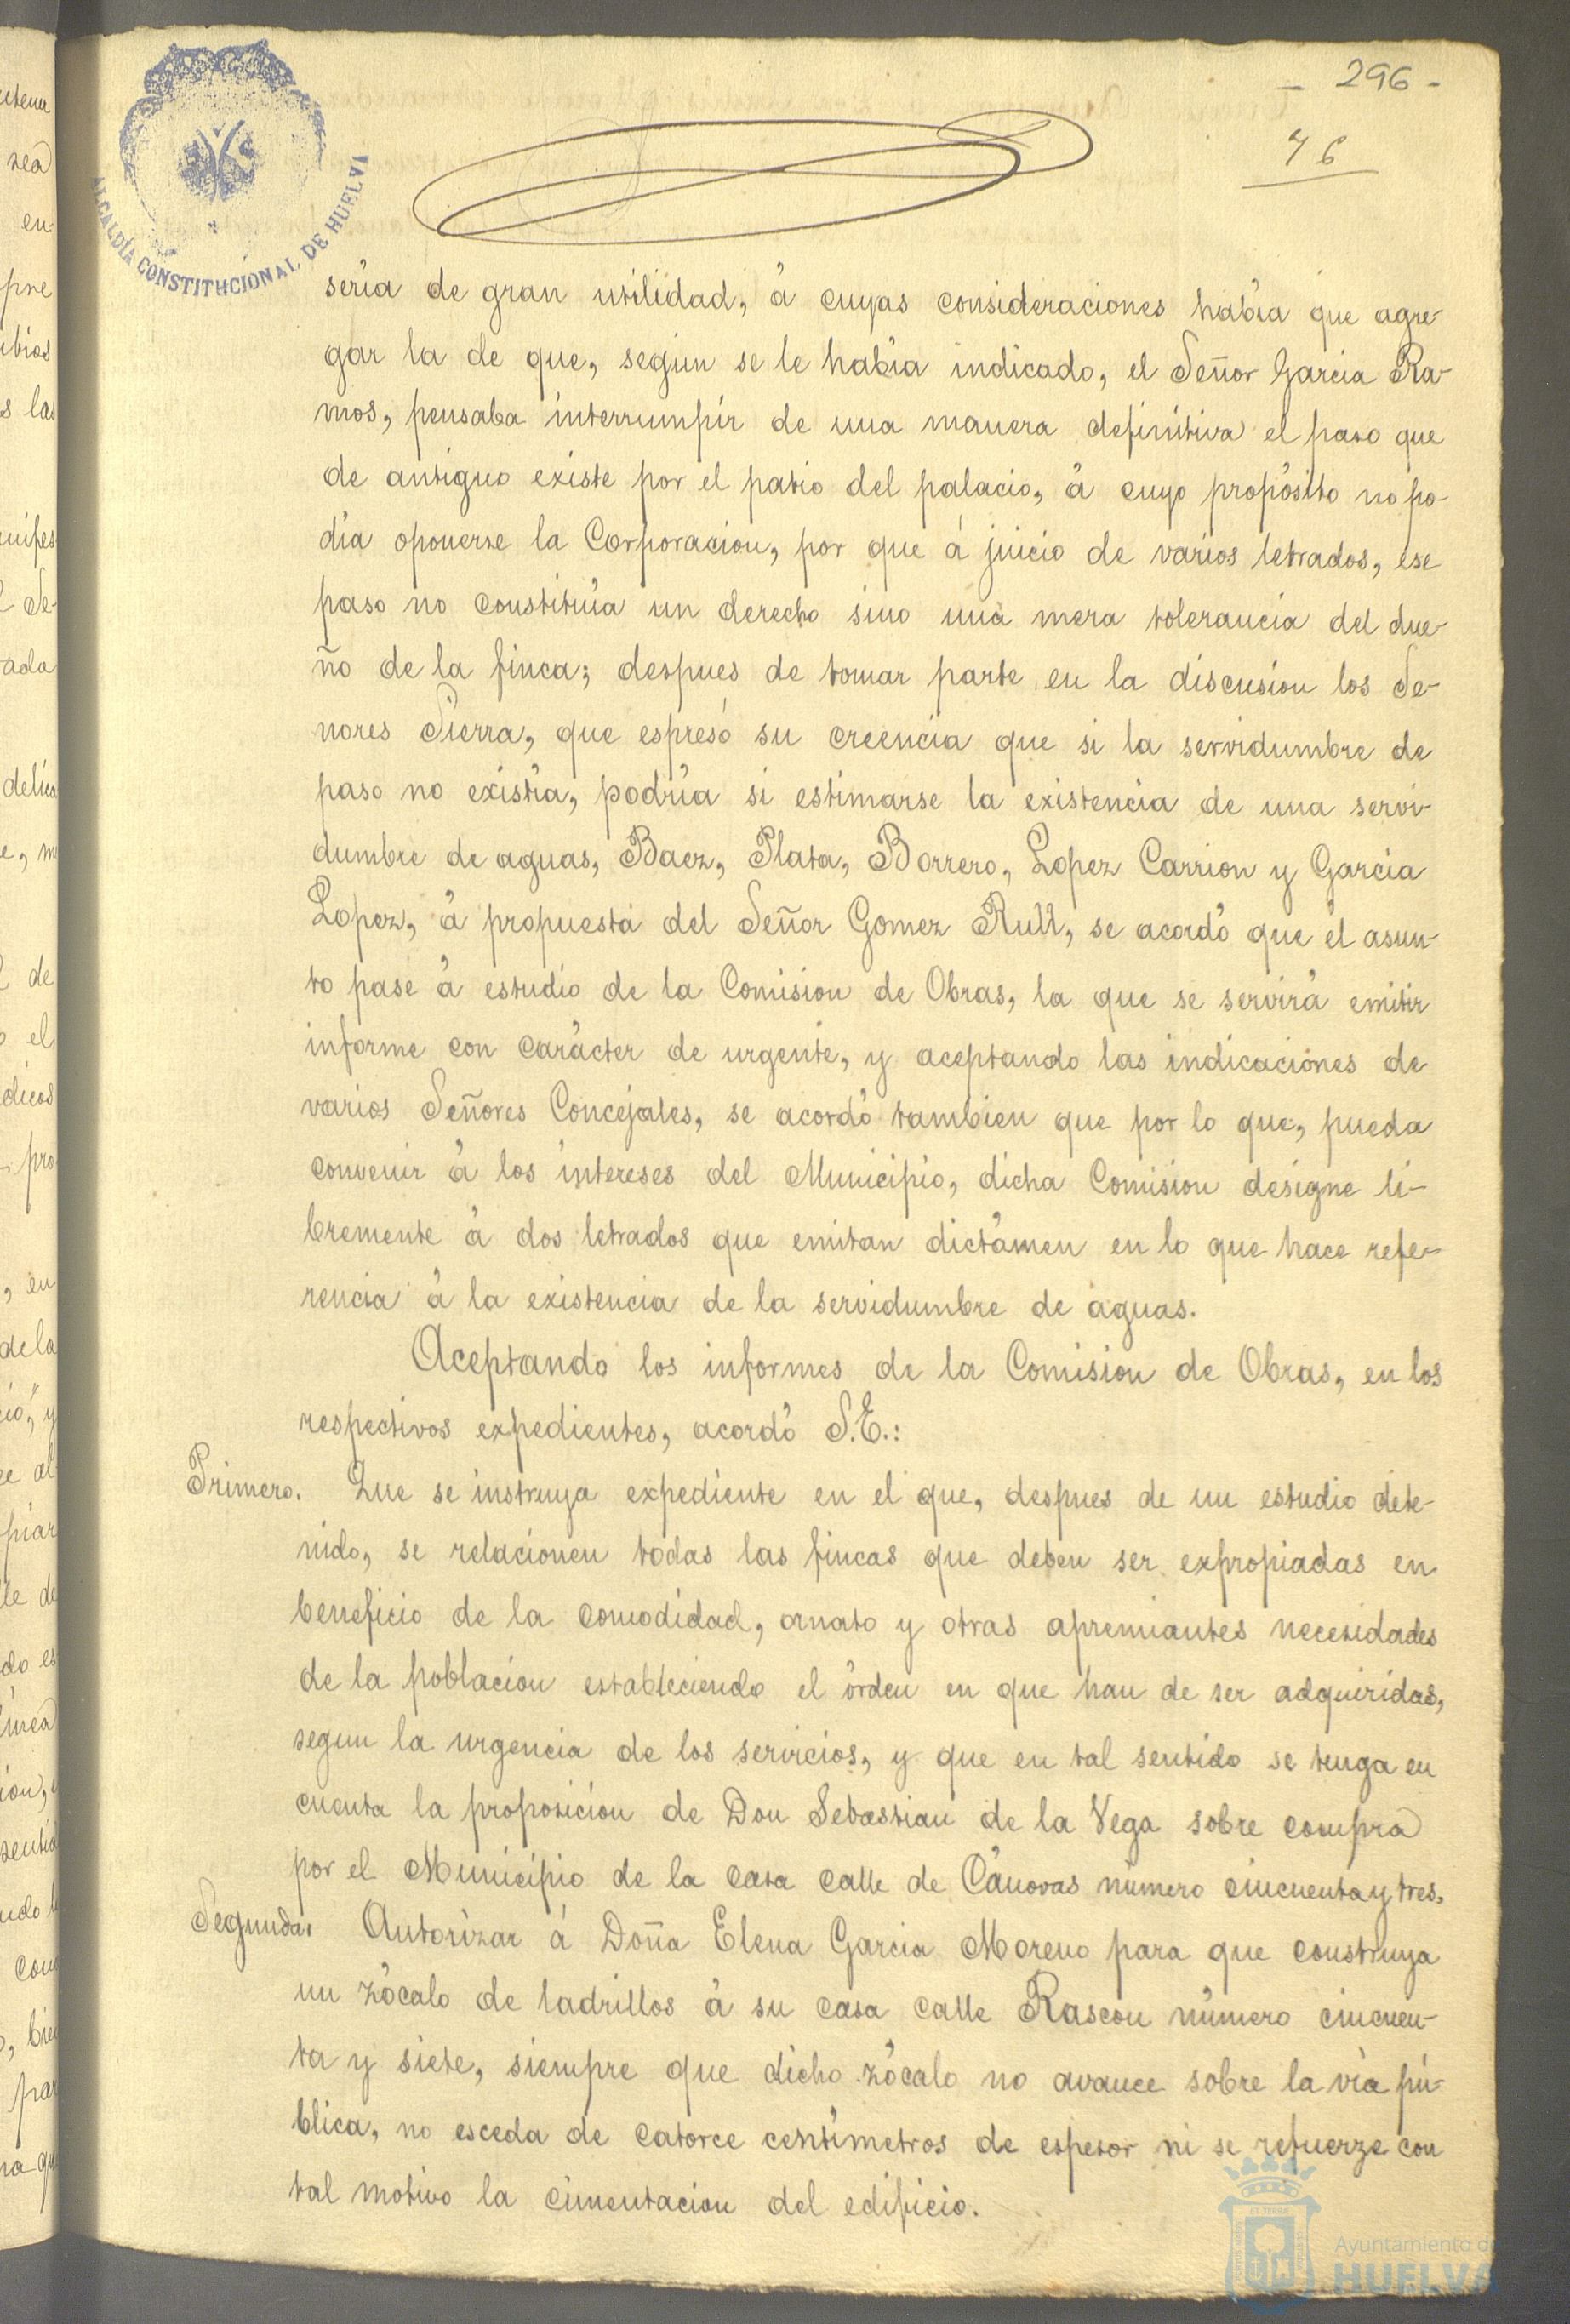 - 296 -
76
ALCALDÍA CONSTITUCIONAL DE HUELVA
sería de gran utilidad, á cuyas consideraciones había que agre-
gar la de que, segun se le había indicado, el Señor Garcia Ra-
mos, pensaba interrumpir de una manera definitiva el paso que
de antiguo existe por el patio del palacio, á cuyo propósito no po-
día oponerse la Corporacion, por que á juicio de varios letrados, ese
paso no constituía un derecho sino una mera tolerancia del due-
ño de la finca; despues de tomar parte en la discusion los Se-
nores Sierra, que espresó su creencia que si la servidumbre de
paso no existía, podría si estimarse la existencia de una servi-
dumbre de aguas, Baez, Plata, Borrero, Lopez Carrion y Garcia
Lopez, á propuesta del Señor Gomez Rull, se acordó que el asun-
to pase á estudio de la Comision de Obras, la que se servirá emitir
informe con carácter de urgente, y aceptando las indicaciones de
varios Señores Concejales, se acordó tambien que por lo que, pueda
convenir á los intereses del Municipio, dicha Comision designe li-
bremente á dos letrados que emitan dictámen en lo que hace refe-
rencia á la existencia de la servidumbre de aguas.
Aceptando los informes de la Comision de Obras, en los
respectivos expedientes, acordó S.E.:
Primero. Que se instruya expediente en el que, despues de un estudio dete-
nido, se relacionen todas las fincas que deben ser expropiadas en
beneficio de la comodidad, ornato y otras apremiantes necesidades
de la poblacion estableciendo el órden en que han de ser adquiridas,
segun la urgencia de los servicios, y que en tal sentido se tenga en
cuenta la proposicion de Don Sebastian de la Vega sobre compra
por el Municipio de la casa calle de Cánovas número cincuenta y tres.
Segundo. Autorizar á Doña Elena Garcia Moreno para que construya
un zócalo de ladrillos á su casa calle Rascon número cincuen-
ta y siete, siempre que dicho zócalo no avance sobre la vía pú-
blica, no esceda de catorce centímetros de espesor ni se refuerze con
tal motivo la cimentacion del edificio.
Ayuntamiento de
HUELVA